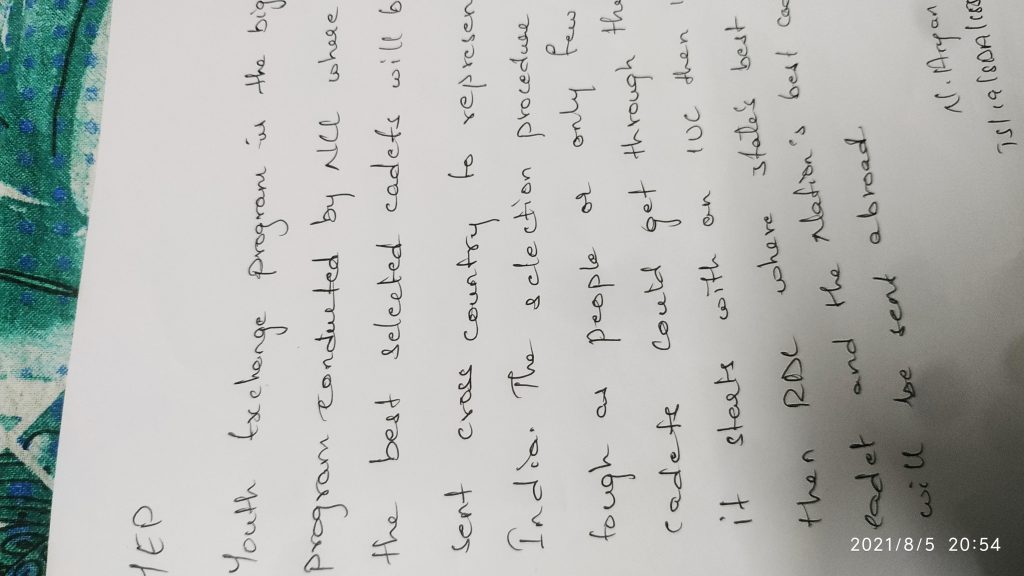 YEP
Youth Exchange program is the big
program conducted by NCC where
the best selected cadets will b
sent cross country to represen
India. The selection procedure
tough as people or only few
cadets could get through the
it starts with an IUC then
then RDC where state's best
cadet and the Nation's best cad
will be sent abroad
N. Arpan
TS/19/SDA/
2021/8/5 20:54